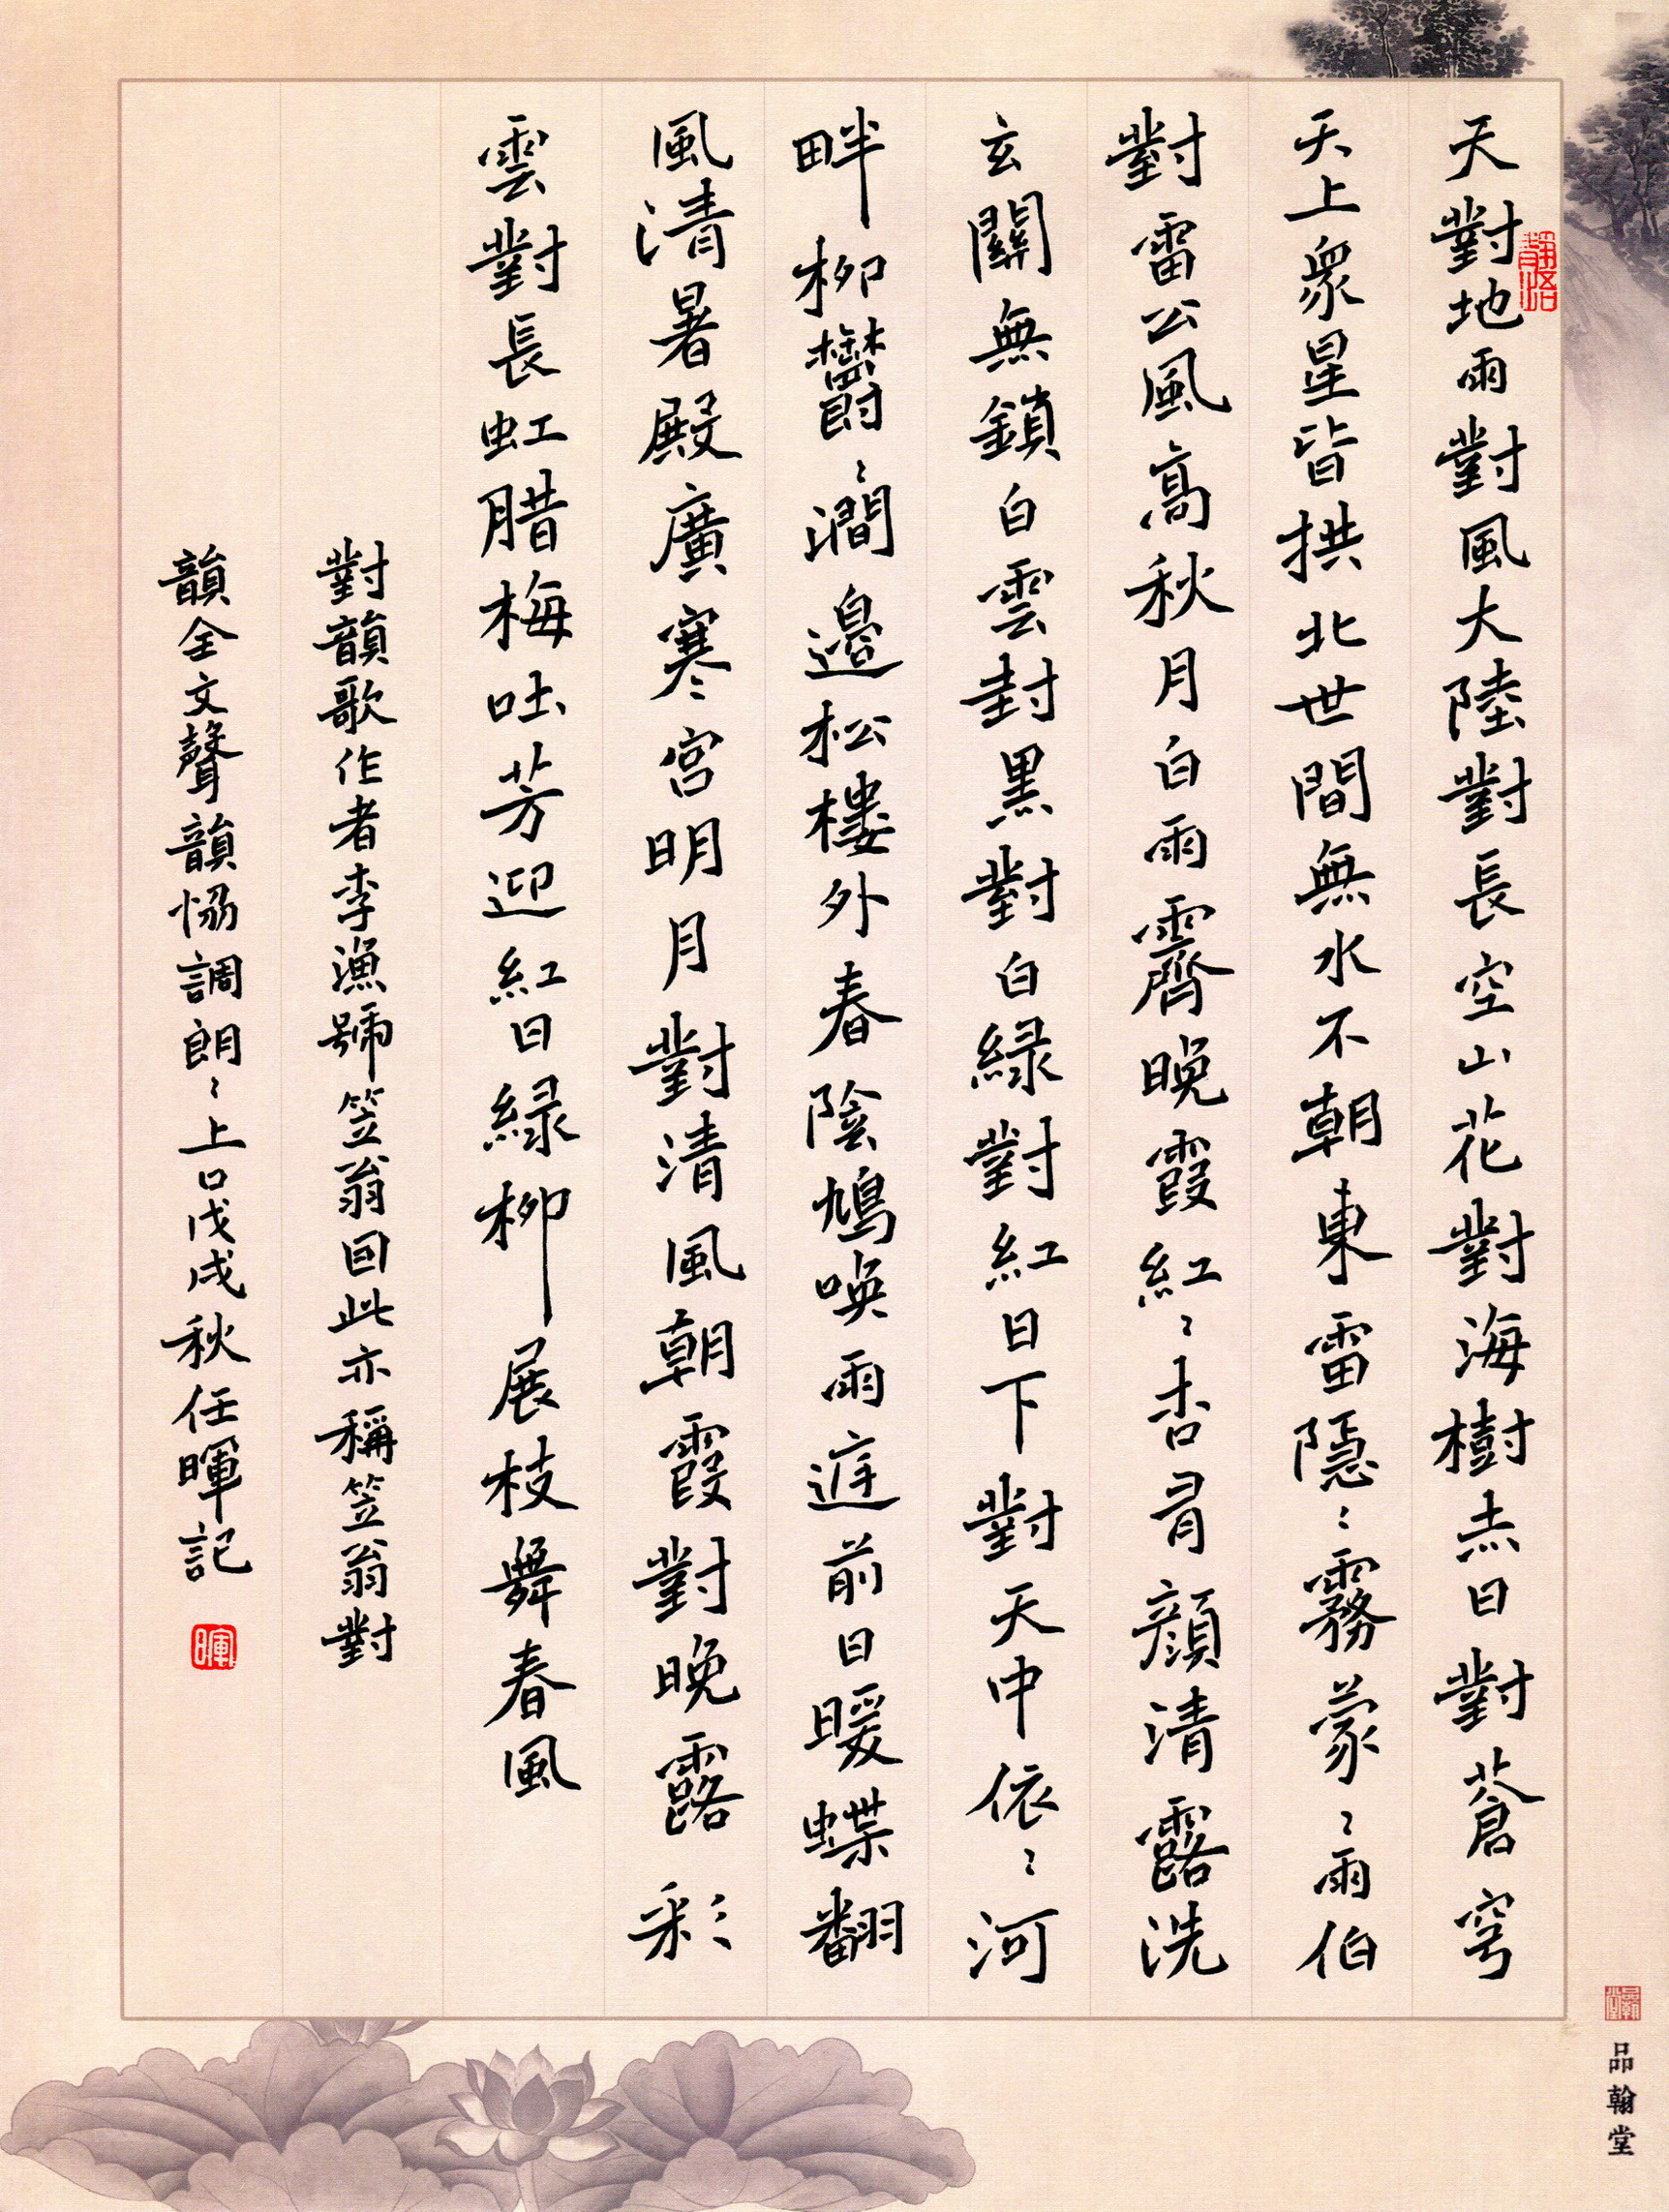 天對地雨對風大陸對長空山花對海樹赤日對蒼穹
天上衆星皆拱北世間無水不朝東雷隱〻霧蒙〻雨伯
對雷公風高秋月白雨霽晚霞紅〻杏肙顔清露洗
玄關無鎖白雲封黑對白緑對紅日下對天中依〻河
畔柳欝〻澗邊松樓外春陰鳩喚雨庭前日暖蝶翻
風清暑殿廣寒宮明月對清風朝霞對晚露彩
雲對長虹腊梅吐芳迎紅日緑柳展枝舞春風
對韻歌作者李漁號笠翁回此亦稱笠翁對
韻全文聲韻恊調朗〻上口戊戌秋任暉記
暉
品翰堂